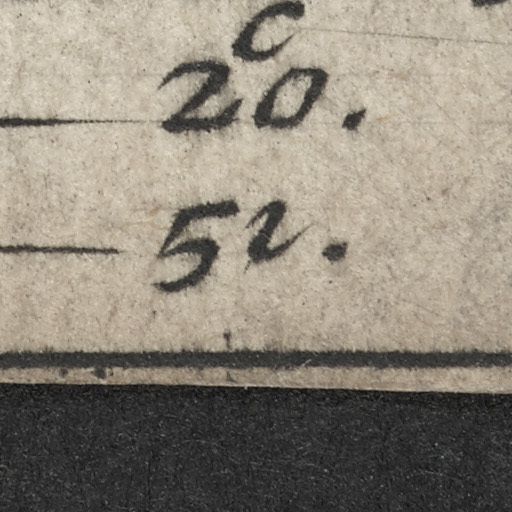 c
20.
52.